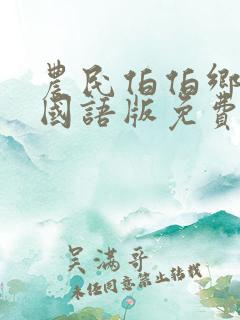 農民伯伯鄉
國語版免費
吴满哥
未经同意禁止转载